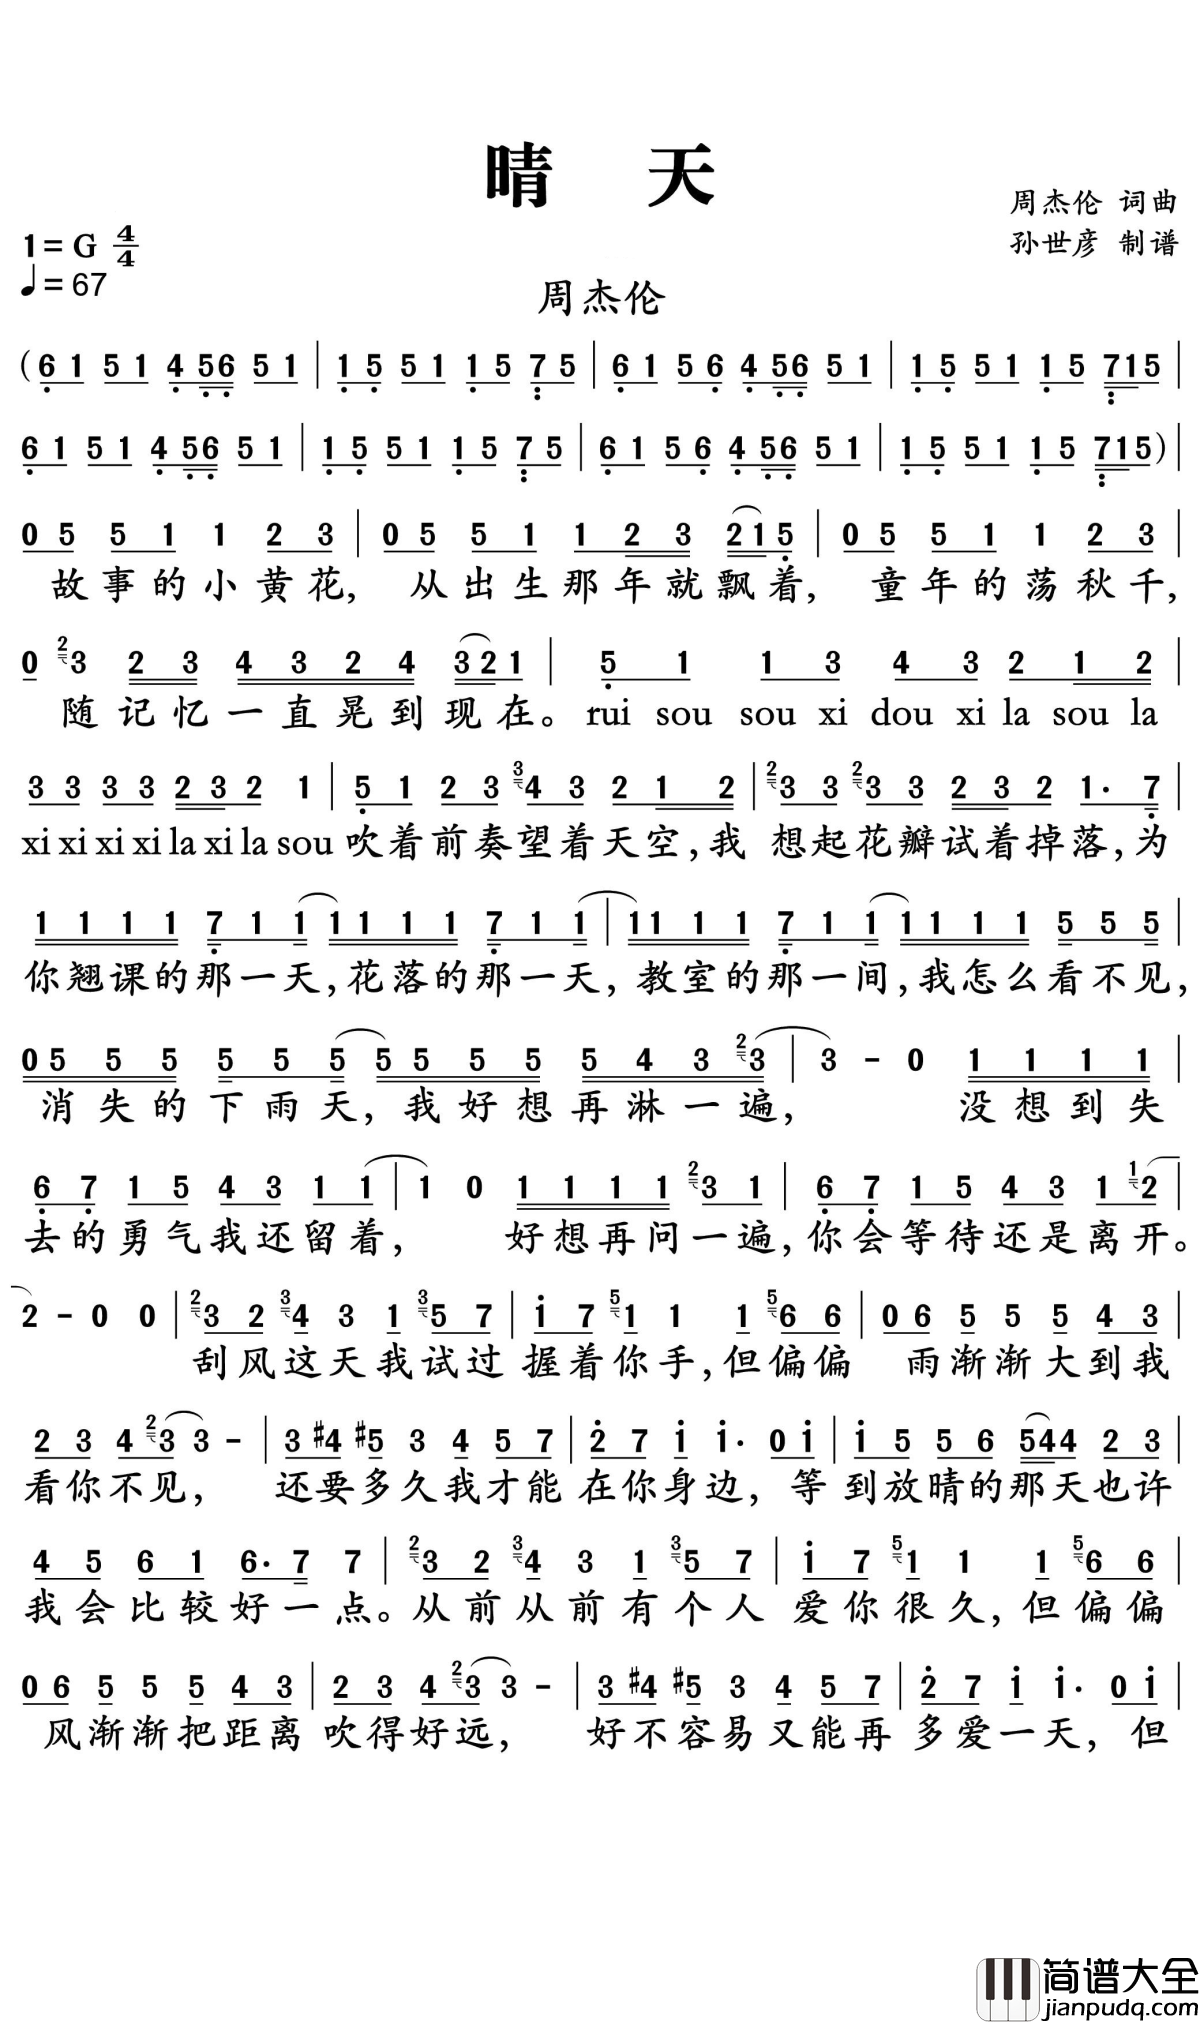 晴 天
周杰伦 词曲
1=G 4/4
孙世彦 制谱
♩=67
周杰伦
(6 1 5 1 4 56 5 1 | 1 5 5 1 1 5 7 5 | 6 1 5 6 4 56 5 1 | 1 5 5 1 1 5 715 |
6 1 5 1 4 56 5 1 | 1 5 5 1 1 5 7 5 | 6 1 5 6 4 56 5 1 | 1 5 5 1 1 5 715) |
0 5 5 1 1 2 3 | 0 5 5 1 1 2 3 21 5 | 0 5 5 1 1 2 3 |
故事的小黄花, 从出生那年就飘着, 童年的荡秋千,
0 2 3 2 3 4 3 2 4 32 1 | 5 1 1 3 4 3 2 1 2 |
随记忆一直晃到现在。rui sou sou xi dou xi la sou la
3 3 3 3 2 3 2 1 | 5 1 2 3 3 4 3 2 1 2 | 2 3 3 2 3 3 2 3 2 1· 7 |
xi xi xi xi la xi la sou 吹着前奏望着天空,我 想起花瓣试着掉落,为
1 1 1 1 7 1 1 1 1 1 1 7 1 1 | 1 1 1 1 7 1 1 1 1 1 1 5 5 5 |
你翘课的那一天,花落的那一天,教室的那一间,我怎么看不见,
0 5 5 5 5 5 5 5 5 5 5 5 4 3 2 3 | 3 - 0 1 1 1 1 |
消失的下雨天,我好想再淋一遍, 没想到失
6 7 1 5 4 3 1 1 | 1 0 1 1 1 1 2 3 1 | 6 7 1 5 4 3 1 1 2 |
去的勇气我还留着, 好想再问一遍,你会等待还是离开。
2 - 0 0 | 2 3 2 3 4 3 1 3 5 7 | i 7 5 1 1 1 5 6 6 | 0 6 5 5 5 4 3 |
刮风这天我试过 握着你手,但偏偏 雨渐渐大到我
2 3 4 2 3 3 - | 3 #4 #5 3 4 5 7 | 2 7 i i· 0 i | i 5 5 6 544 2 3 |
看你不见, 还要多久我才能 在你身边, 等到放晴的那天也许
4 5 6 1 6· 7 7 | 2 3 2 3 4 3 1 3 5 7 | i 7 5 1 1 1 5 6 6 |
我会比较好一点。从前从前有个人 爱你很久,但偏偏
0 6 5 5 5 4 3 | 2 3 4 2 3 3 - | 3 #4 #5 3 4 5 7 | 2 7 i i· 0 i |
风渐渐把距离 吹得好远, 好不容易又能再 多爱一天, 但
简谱大全
jianpudq.com